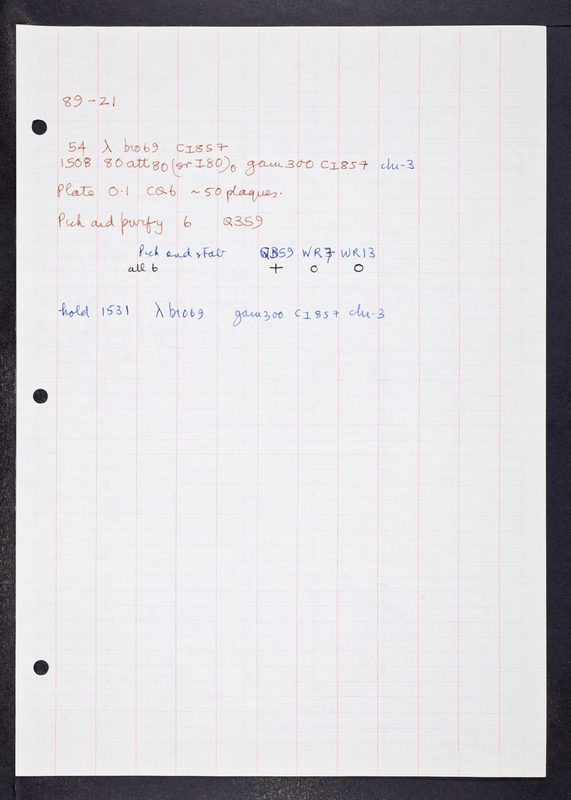 89-21
54 λ bio69 CI857
1508 80att80(sr I80)0 gam300 CI857 chi-3
Plate 0.1 CQ6 ~50 plaques.
Pick and purify 6 Q359
Pick and stab Q359 WR7 WR13
all 6 + o o
hold 1531 λ bio69 gam300 CI857 chi-3